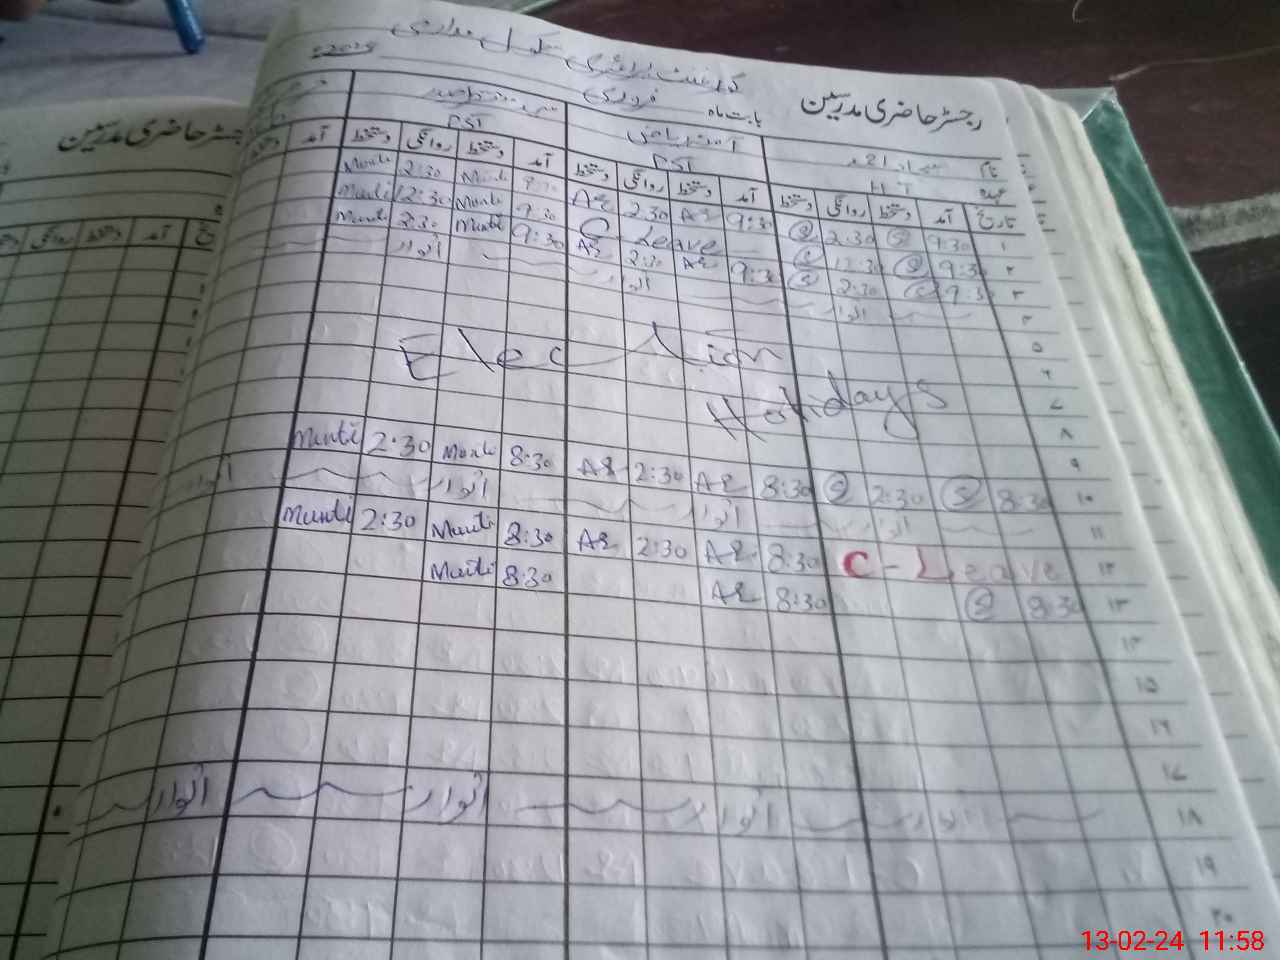 رجسٹر حاضری مدرسین
گورنمنٹ پرائمری سکول
بابت ماہ فروری
نام
عہدہ HT PST PST
تاریخ آمد دستخط روانگی دستخط آمد دستخط روانگی دستخط آمد دستخط روانگی دستخط
۱ 9:30 2:30 9:30 AR 2:30 AR Munti 2:30 Munti
۲ 9:30 12:30 C Leave 9:30 Munti 12:30 Munti
۳ 9:30 2:30 9:30 AR 2:30 AR 9:30 Munti 2:30 Munti
۴ اتوار اتوار اتوار
۵
۶ Election
۷ Holidays
۸
۹
۱۰ 8:30 2:30 8:30 AR 2:30 AR 8:30 Munti 2:30 Munti
۱۱ اتوار اتوار اتوار اتوار
۱۲ C-Leave 8:30 AR 2:30 AR 8:30 Munti 2:30 Munti
۱۳ 8:30 8:30 AR 8:30 Munti
۱۴
۱۵
۱۶
۱۷
۱۸ اتوار اتوار اتوار اتوار
۱۹
۲۰
رجسٹر حاضری مدرسین
آمد دستخط
آمد دستخط روانگی دستخط
13-02-24 11:58